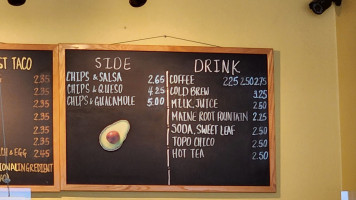 ST TACO
2.35
2.35
2.35
2.35
2.35
2.35
H & EGG 2.45
INGREDIENT
SIDE
CHIPS & SALSA 2.65
CHIPS & QUESO 4.25
CHIPS & GUACAMOLE 5.00
DRINK
COFFEE 2.25 2.50 2.75
COLD BREW 3.25
MILK, JUICE 2.50
MAINE ROOT FOUNTAIN 2.25
SODA, SWEET LEAF 2.50
TOPO CHICO 2.50
HOT TEA 2.50